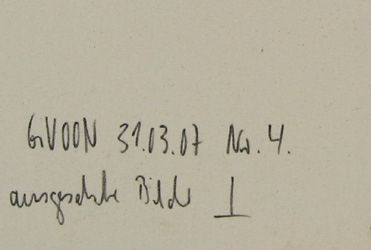 GVOON 31.03.07 No. 4.
ausgesuchte Bilder I